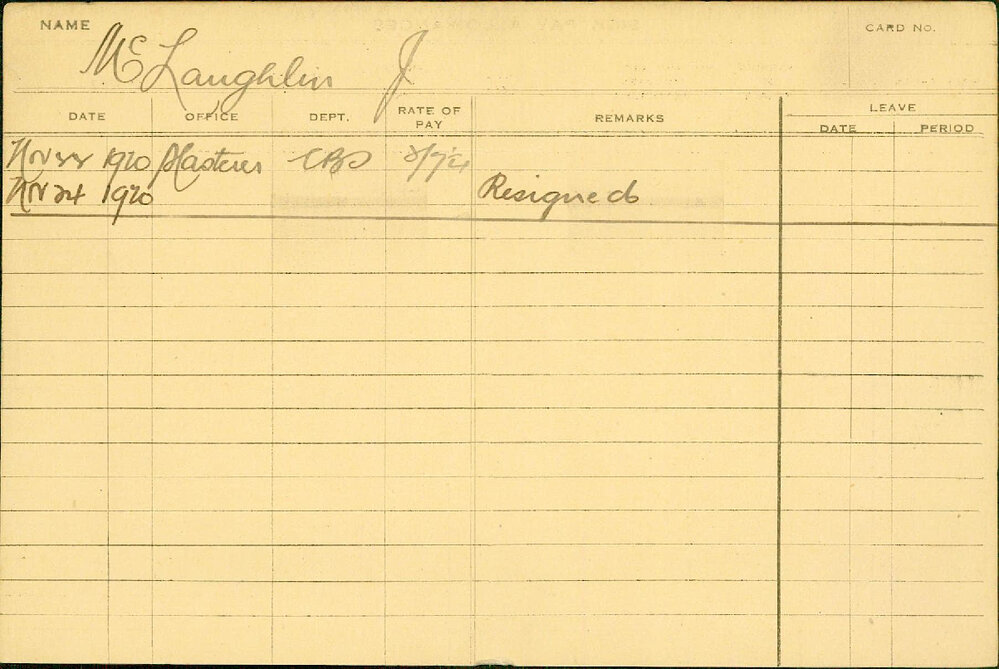 NAME
CARD No.
McLaughlin J
DATE OFFICE DEPT. RATE OF PAY REMARKS LEAVE
DATE PERIOD
Nov 22 1920 Plasterer CBD
Nov 24 1920 Resigned